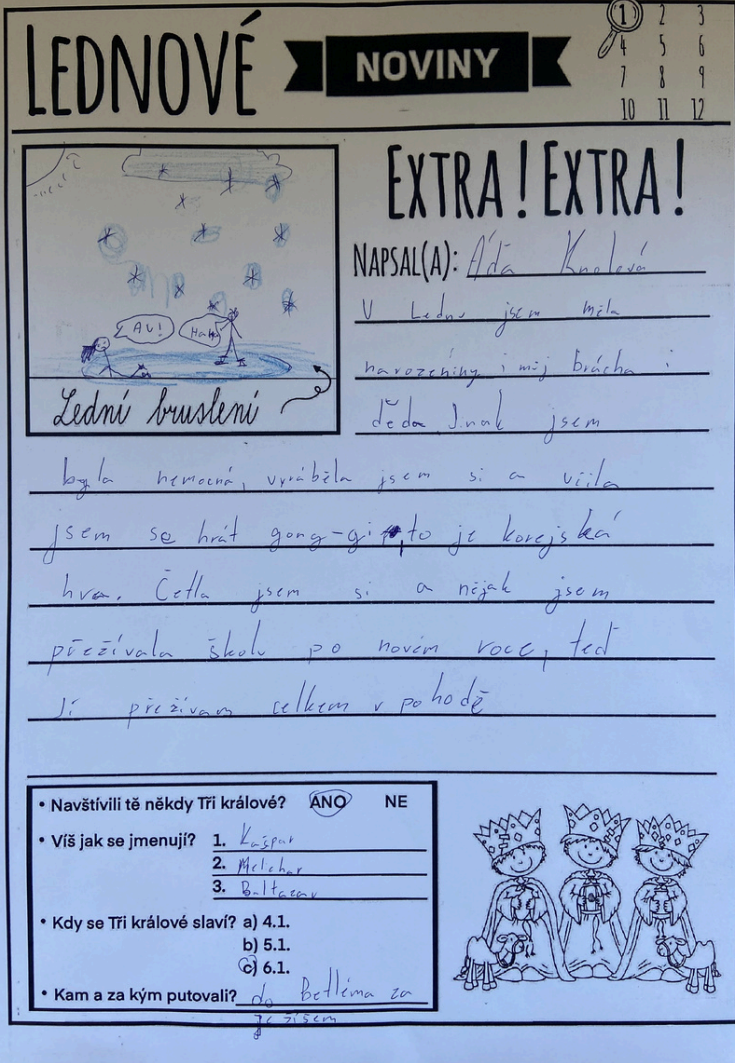 LEDNOVÉ
NOVINY
1 2 3
4 5 6
7 8 9
10 11 12
EXTRA! EXTRA!
NAPSAL(A): Áďa
V Lednu jsem měla
narozeniny i můj brácha i
děda. Jinak jsem
byla nemocná, vyráběla jsem si a učila
jsem se hrát gong-gi, to je korejská
hra. Četla jsem si a nějak jsem
přežívala školu po novém roce, teď
Jí přežívam celkem v pohodě
AU!
Haha
Lední bruslení
• Navštívili tě někdy Tři králové? ANO NE
• Víš jak se jmenují? 1. Kašpar
2. Melichar
3. Baltazar
• Kdy se Tři králové slaví? a) 4.1.
b) 5.1.
c) 6.1.
• Kam a za kým putovali? do Betléma za
ježíšem